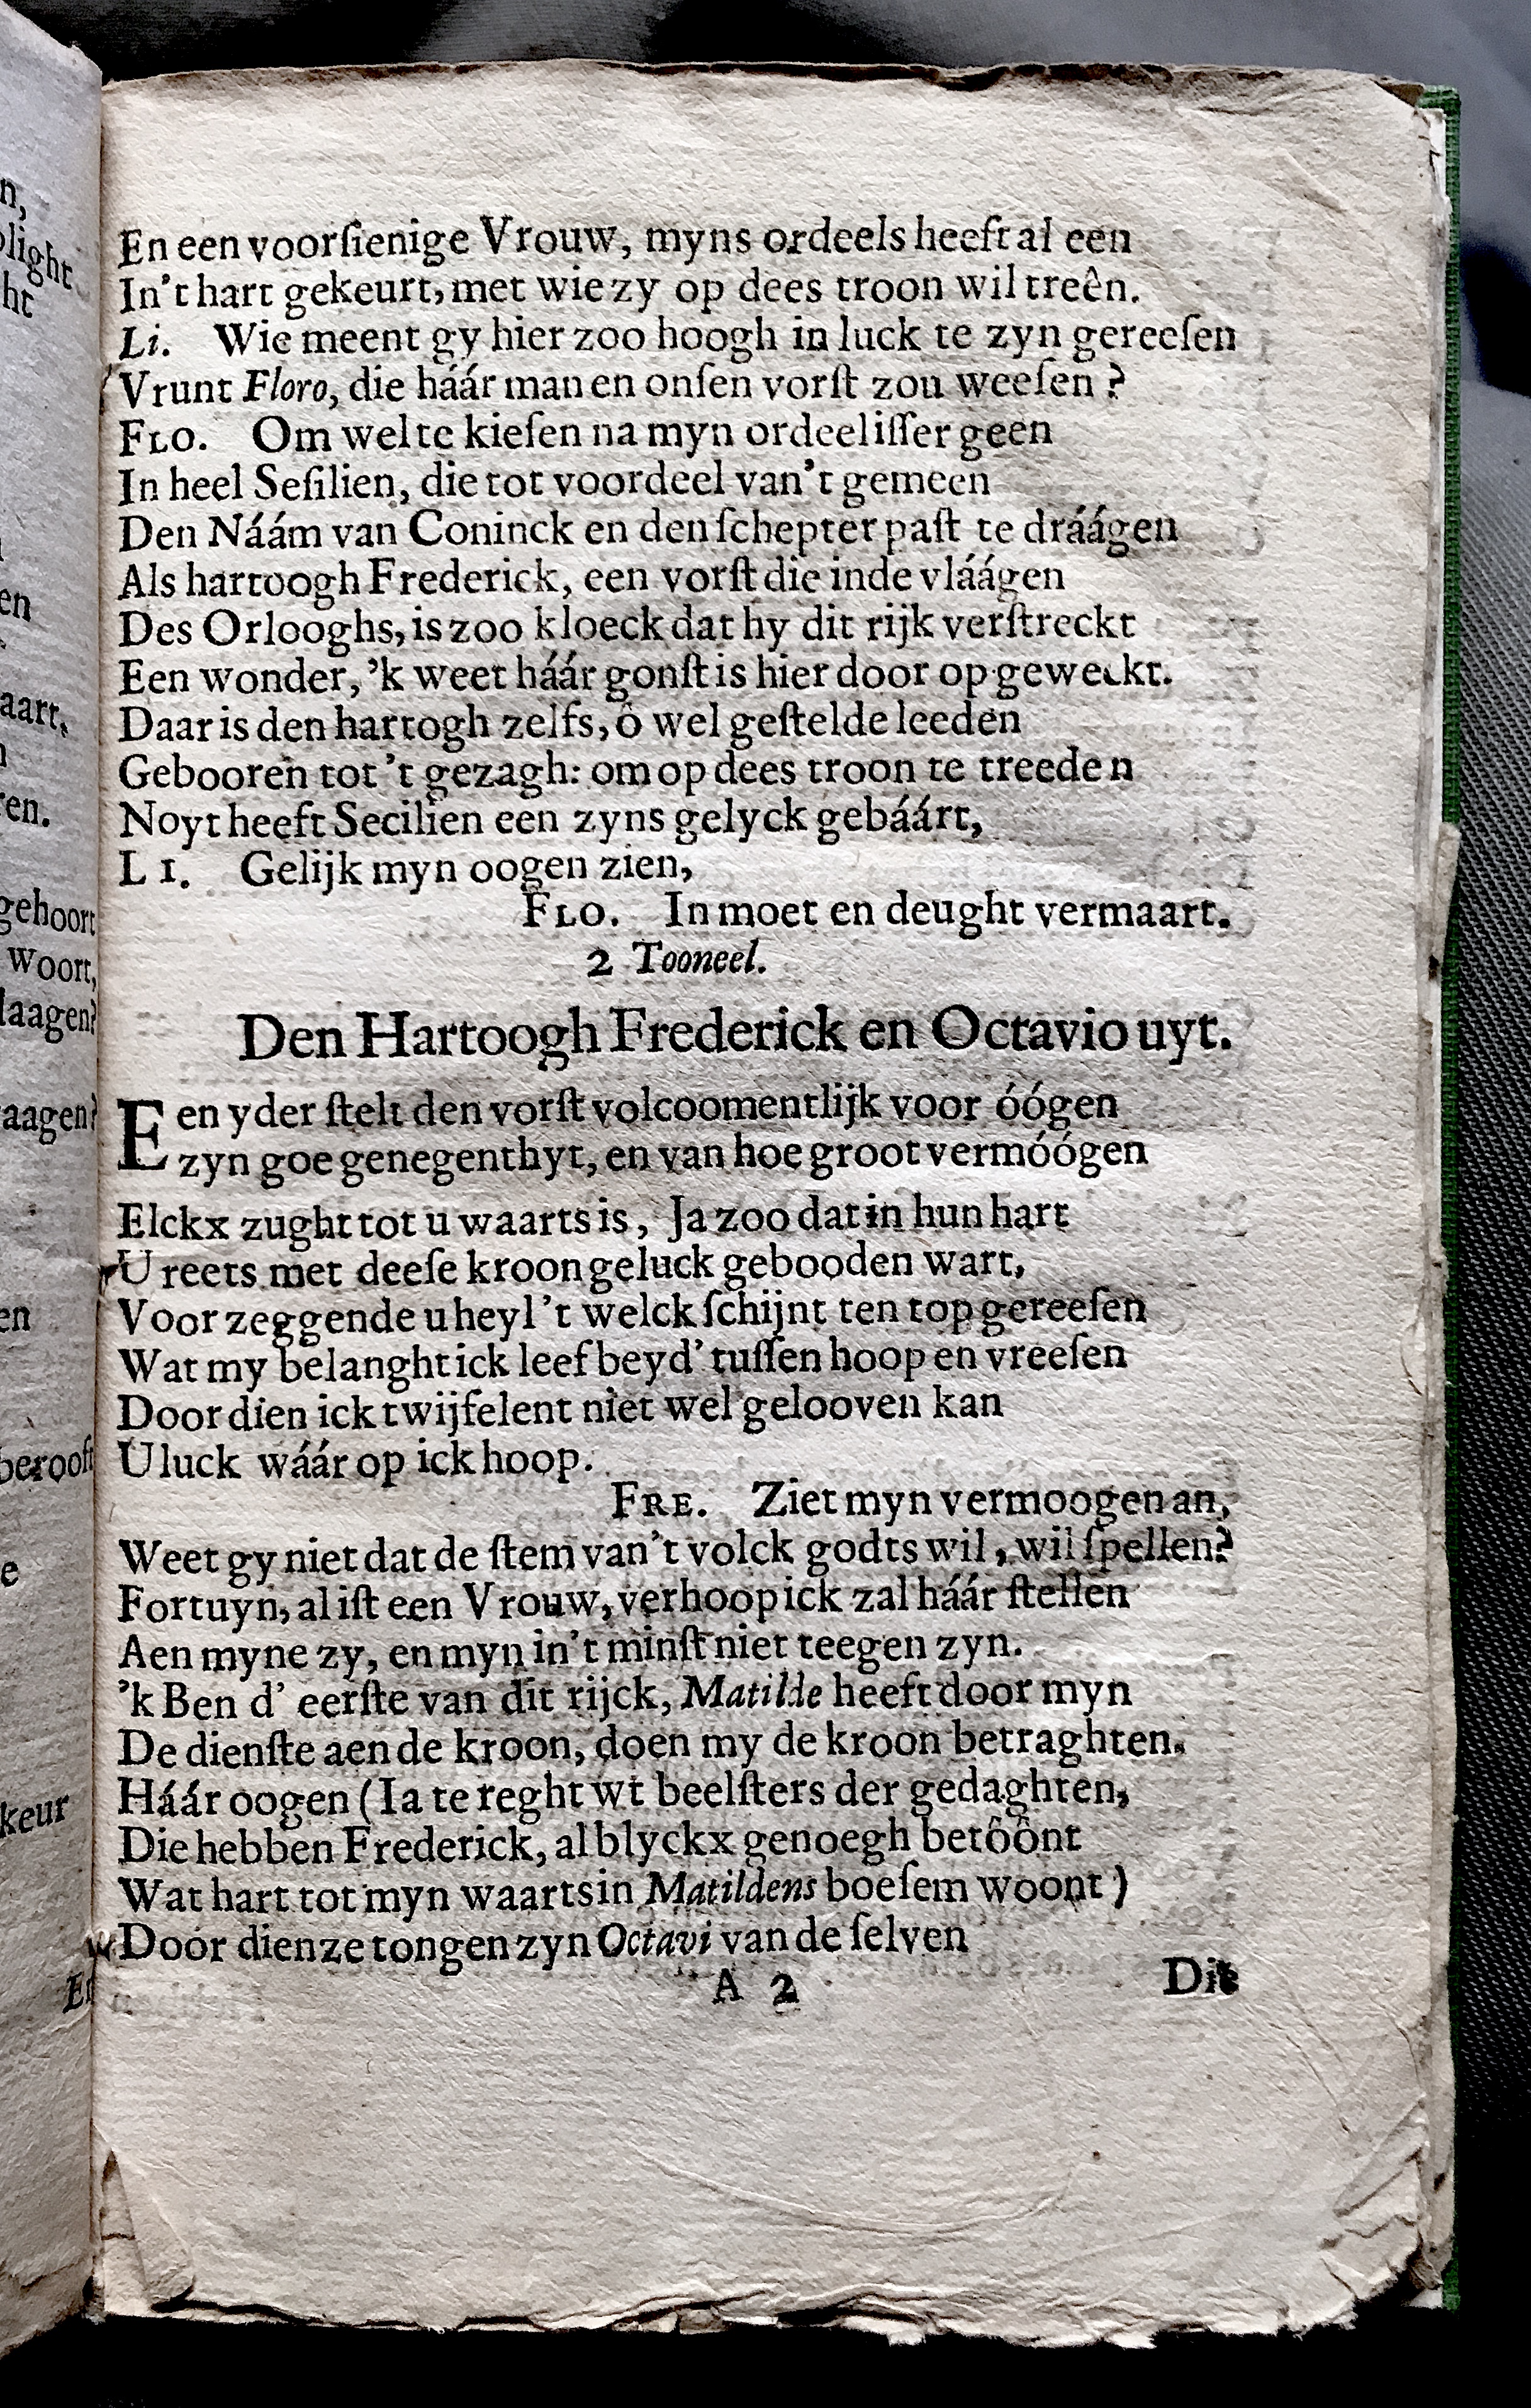 En een voorſienige Vrouw, myns ordeels heeft al een
In't hart gekeurt, met wie zy op dees troon wil treên.
Li. Wie meent gy hier zoo hoogh in luck te zyn gereeſen
Vrunt Floro, die háár man en onſen vorſt zou weeſen ?
FLO. Om wel te kieſen na myn ordeel iſſer geen
In heel Seſilien, die tot voordeel van't gemeen
Den Náám van Coninck en den ſchepter paſt te dráágen
Als hartoogh Frederick, een vorſt die inde vláágen
Des Orlooghs, is zoo kloeck dat hy dit rijk verſtreckt
Een wonder, 'k weet háár gonſt is hier door op geweckt.
Daar is den hartogh zelfs, ô wel geſtelde leeden
Gebooren tot 't gezagh: om op dees troon te treeden
Noyt heeft Secilien een zyns gelyck gebáárt,
LI. Gelijk myn oogen zien,
FLO. In moet en deught vermaart.
2 Tooneel.
Den Hartoogh Frederick en Octavio uyt.
Een yder ſtelt den vorſt volcoomentlijk voor óógen
zyn goe genegenthyt, en van hoe groot vermóógen
Elckx zught tot u waarts is, Ja zoo dat in hun hart
U reets met deeſe kroon geluck gebooden wart,
Voor zeggende u heyl 't welck ſchijnt ten top gereeſen
Wat my belanght ick leef beyd' tuſſen hoop en vreeſen
Door dien ick twijfelent niet wel gelooven kan
U luck wáár op ick hoop.
FRE. Ziet myn vermoogen an,
Weet gy niet dat de ſtem van't volck godts wil, wil ſpellen?
Fortuyn, al iſt een Vrouw, verhoop ick zal háár ſtellen
Aen myne zy, en myn in't minſt niet teegen zyn.
'k Ben d' eerſte van dit rijck, Matilde heeft door myn
De dienſte aen de kroon, doen my de kroon betraghten.
Háár oogen (Ia te reght wt beelſters der gedaghten,
Die hebben Frederick, al blyckx genoegh betôônt
Wat hart tot myn waarts in Matildens boeſem woont )
Door dien ze tongen zyn Octavi van de ſelven
A 2 Dit